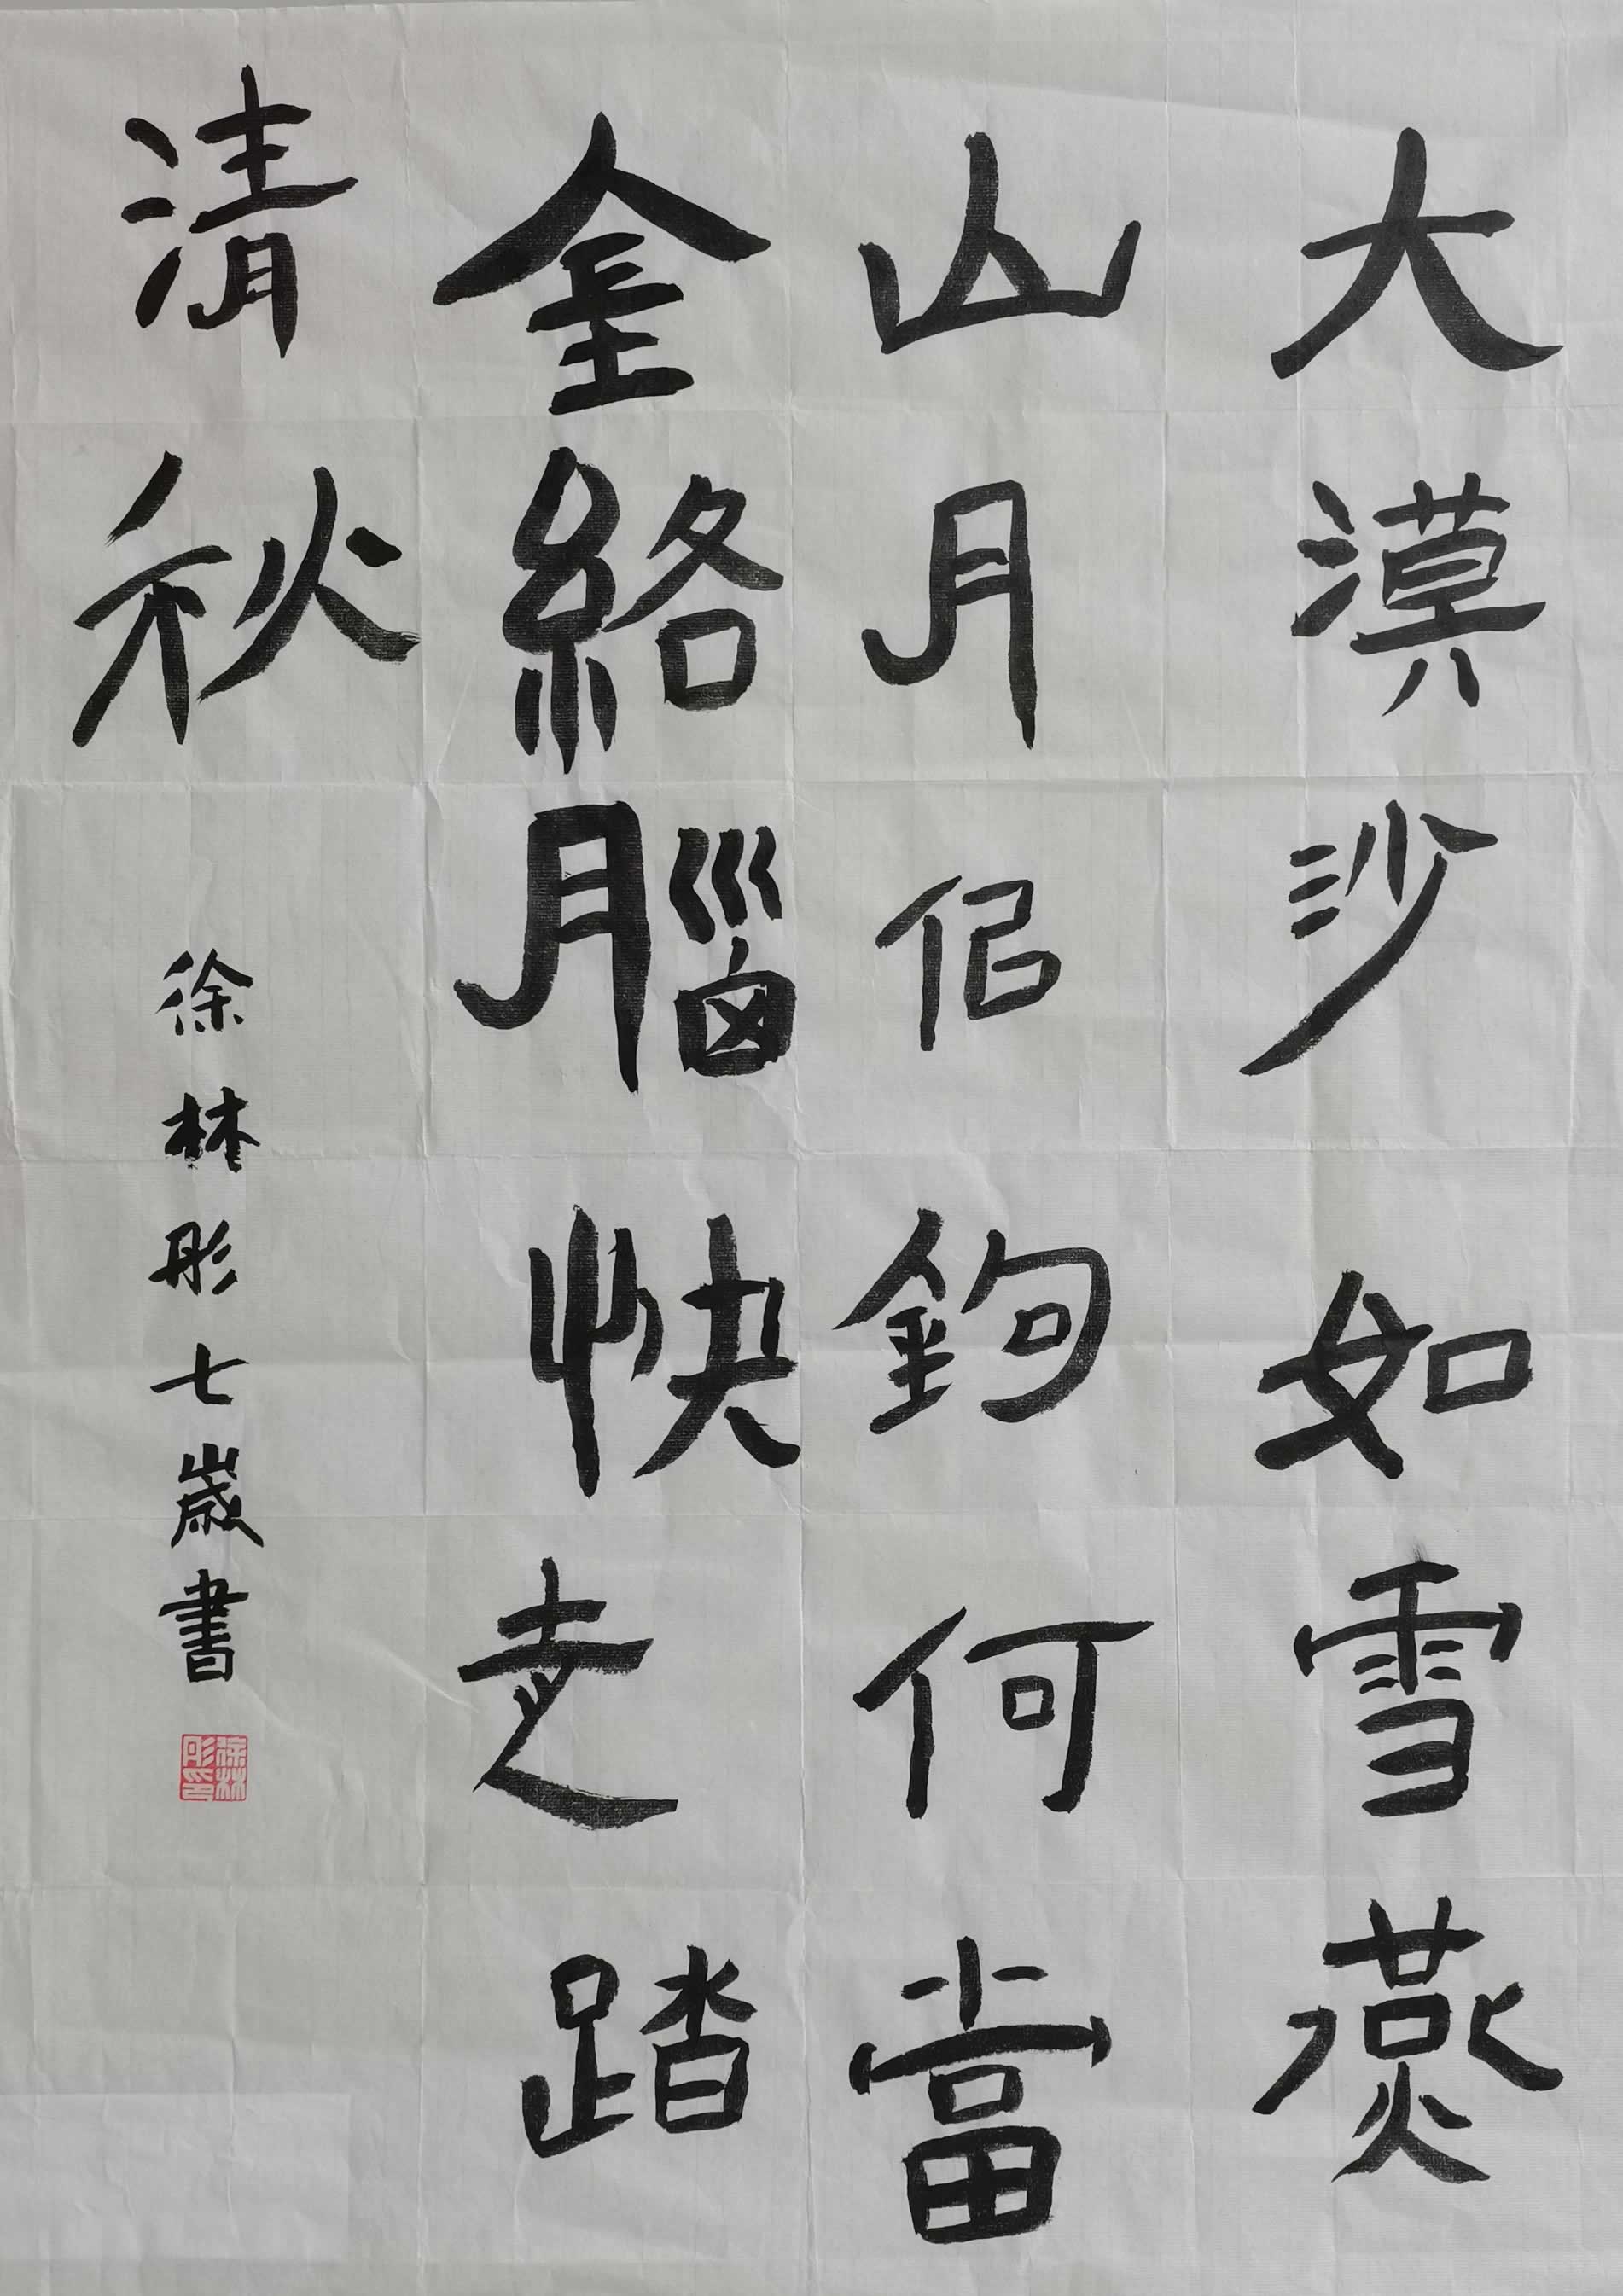 大漠沙如雪燕
山月佀鉤何當
金絡腦快走踏
清秋
徐林彤七歲書
徐林彤印